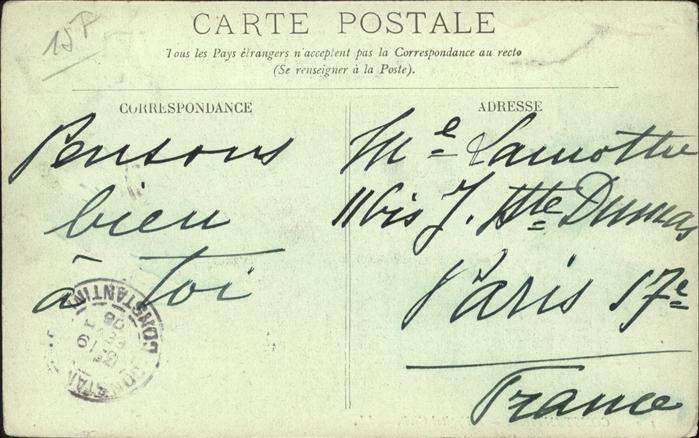 CARTE POSTALE
Tous les Pays étrangers n'acceptent pas la Correspondance au recto
(Se renseigner à la Poste).
CORRESPONDANCE
Pensons
bien
à toi
ADRESSE
Mle Lamothe
11bis J. Bte Dumas
Paris 17e
France
15 F
CONSTANTIN
08